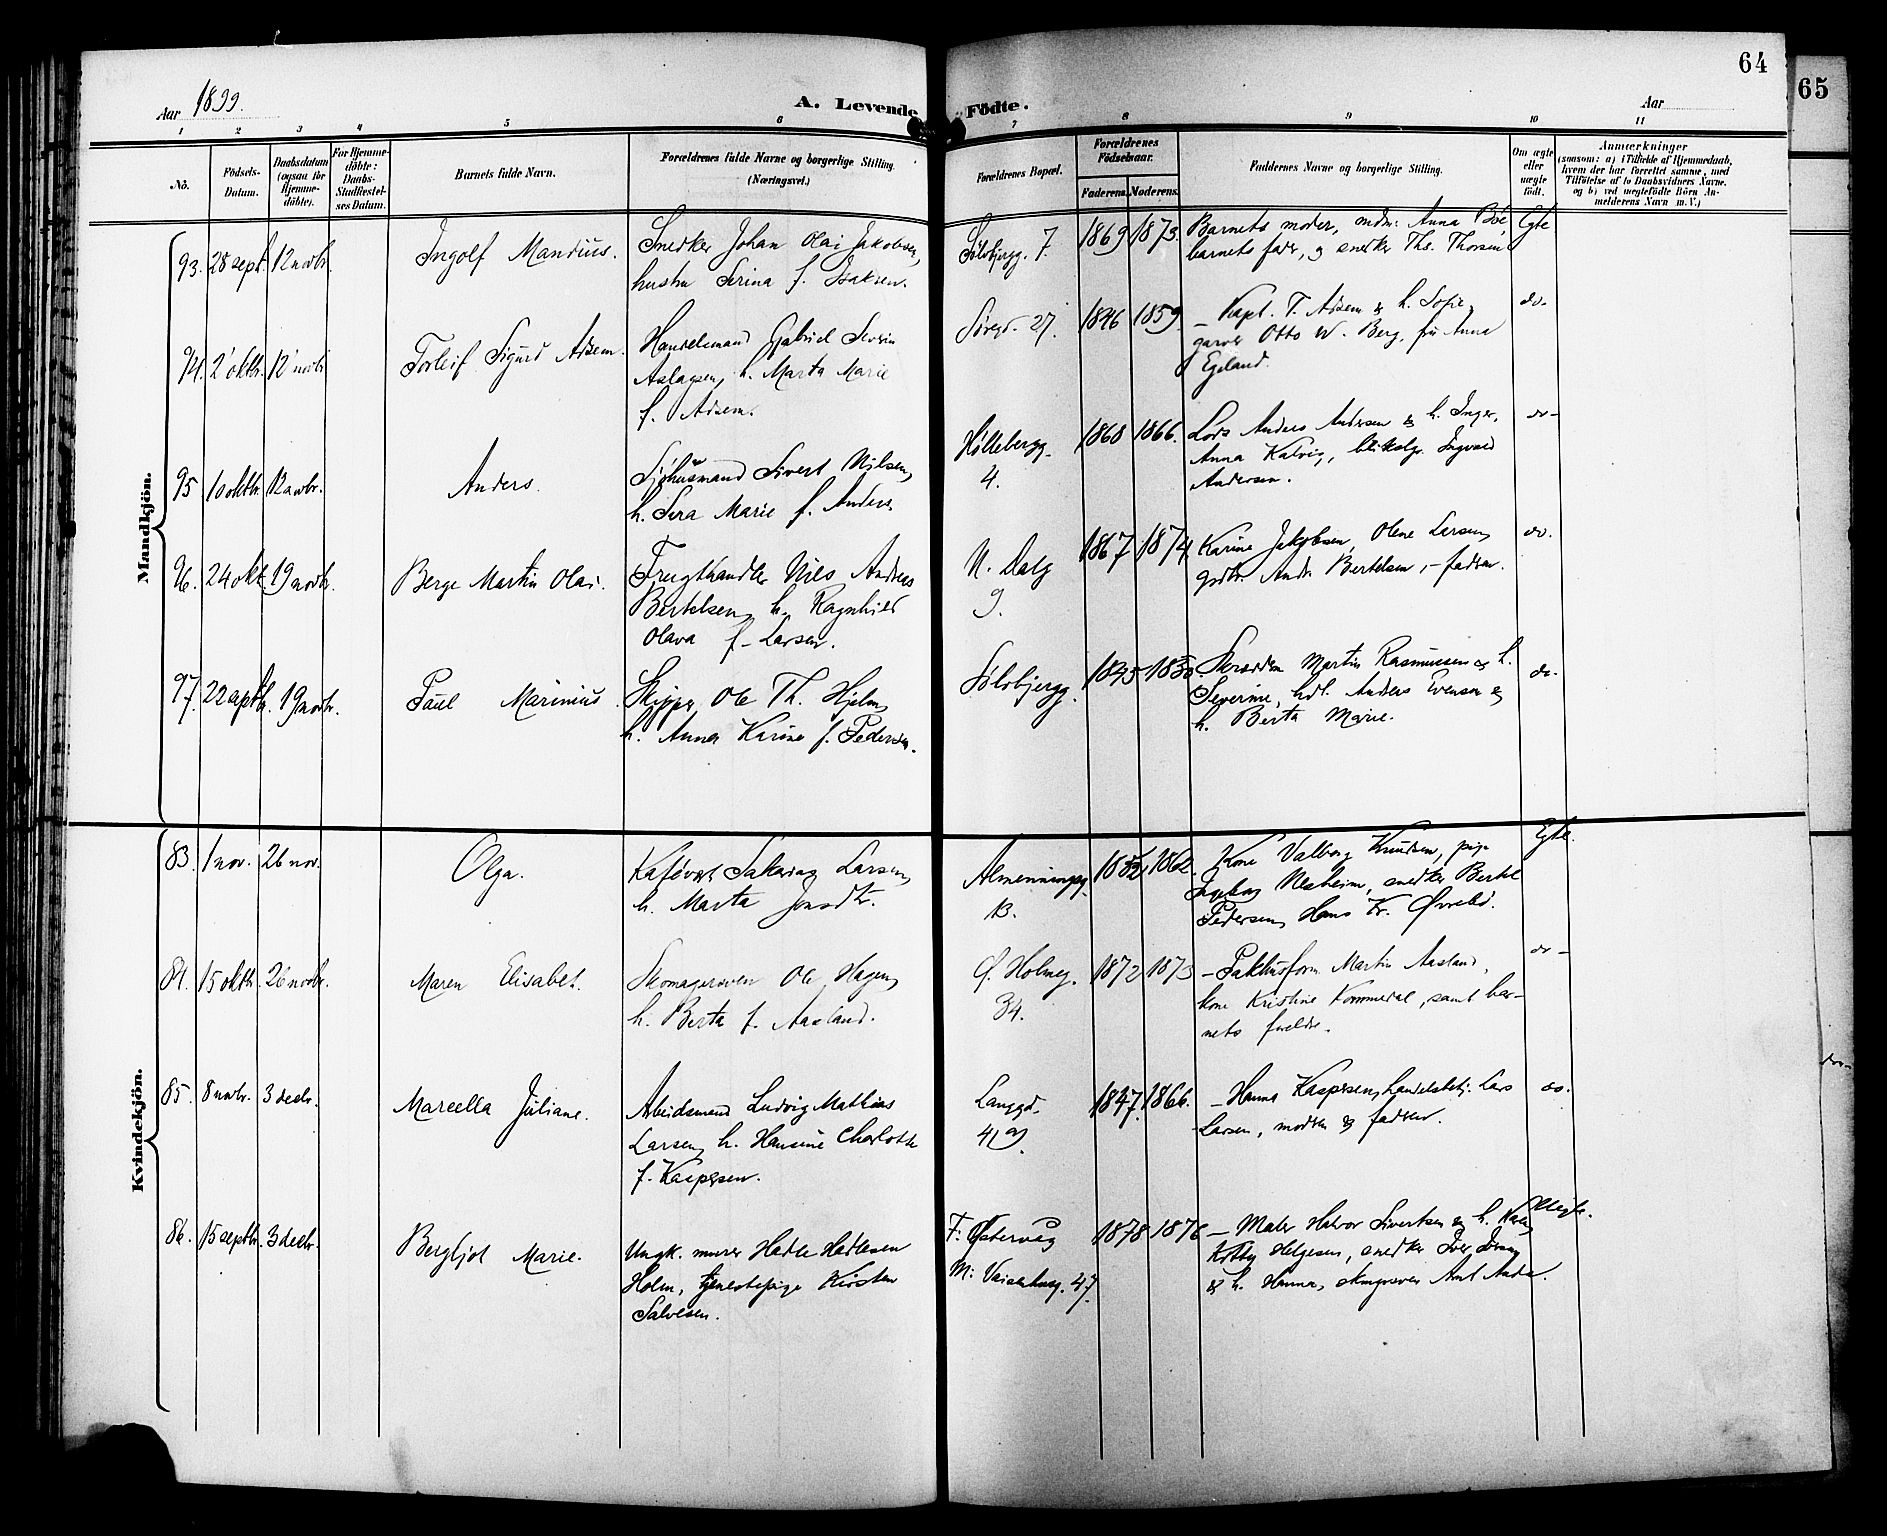 Aar 1899.
A. Levende Födte.
Aar
64
65
1 2 3 4 5 6 7 8 9 10 11
No.
Födsels-Datum.
Daabsdatum (ogsaa for Hjemmedöbte).
For Hjemmedöbte: Daabs-Stadfæstelses Datum.
Barnets fulde Navn.
Forældrenes fulde Navne og borgerlige Stilling. (Næringsvei.)
Forældrenes Bopæl.
Forældrenes Födselsaar.
Faderens. Moderens.
Faddernes Navne og borgerlige Stilling.
Om ægte eller uægte födt.
Anmærkninger
(saasom: a) i Tilfælde af Hjemmedaab, hvem der har forrettet samme, med Tilföielse af to Daabsvidners Navne, og b) ved uægtefödte Börn Anmelderens Navn m. V.)
Mandkjön.
93. 28 sept. 12 novbr. Ingolf Mandius.
Snedker Johan Olai Jakobsen,
hustru Serina f. Isaksen.
Sölvbjergg. 7. 1869 1873.
Barnets moder, mdm: Anna Böe
barnets fader, og snedker Ths. Thorsen
Egte
94. 2 oktbr. 12 novbr Torleif Sigurd Adsem.
Handelsmand Gabriel Severin
Aslagsen, h. Marta Marie
f. Adsem.
Söregd. 27. 1846 1859.
- Kapt. T. Adsem & h. Sofie,
garver Otto W. Berg, frk Anna
Egeland.
do-
95 10 oktbr. 12 novbr. Anders.
Sjöhusmand Sivert Nilsen,
h. Sera Marie f. Anders.
Höllebergg. 4. 1868 1866.
Lods Anders Andersen & h. Inger,
Anna Kalvig, blikslgr. Ingvald
Andersen.
do-
96. 24 okt. 19 novbr. Berge Martin Olai.
Frugthandler Nils Andreas
Bertelsen, h. Ragnhild
Olava f. Larsen.
N. Dalg 9. 1867 1874
Karine Jakobsen, Olene Larsen,
Andr. Bertelsen, - faderen.
do.
97. 22 sptbr. 19 novbr. Paul Marinius
Skipper Ole Th. Hjelm,
h. Anna Karine f. Pedersen.
Sölvbjergg.
Skrædder Martin Rasmussen & h.
Severine, hdl. Anders Evensen &
h. Berta Marie.
do.
Kvindekjön.
83. 1 nov. 26 nov. Olga.
Kafévert Sakarias Larsen,
h. Marta Jonsdtr.
Almenningsg. 13. 1852 1862.
Kone Valborg Knudsen, pige
Ingeborg Nesheim, snedker Bertel
Pedersen, Hans Kr. Övrebö.
Egte.
84. 15 oktbr. 26 novbr. Maren Elisabet.
Skomagersven Ole Hagen,
h. Berta f. Aasland.
Ö. Holmeg. 34. 1872 1873
- Pakhusform. Martin Aasland,
kone Kristine Kommedal, samt bar-
nets foreldre.
do-
85. 8 novbr. 3 decbr. Marcella Juliane.
Arbeidsmand Ludvig Mathias
Larsen, h. Hansine Charlotte
f. Kaspersen.
Langgd. 41 a). 1847. 1866.
- Hanna Kaspersen, handelsbetj. Lars
Larsen, modren & fadren.
do.
86. 15 septbr. 3 decbr. Bergljot Marie.
Ungk. murer Hadle Hadlesen
Holm, tjenestepige Kirsten
Salvesen.
F: Östervåg
M: Vaisenhusg. 47. 1878 1876
- Maler Halvor Sivertsen & h.
Helgesen, snedker Iver
& h. Hanna,
Uegte.